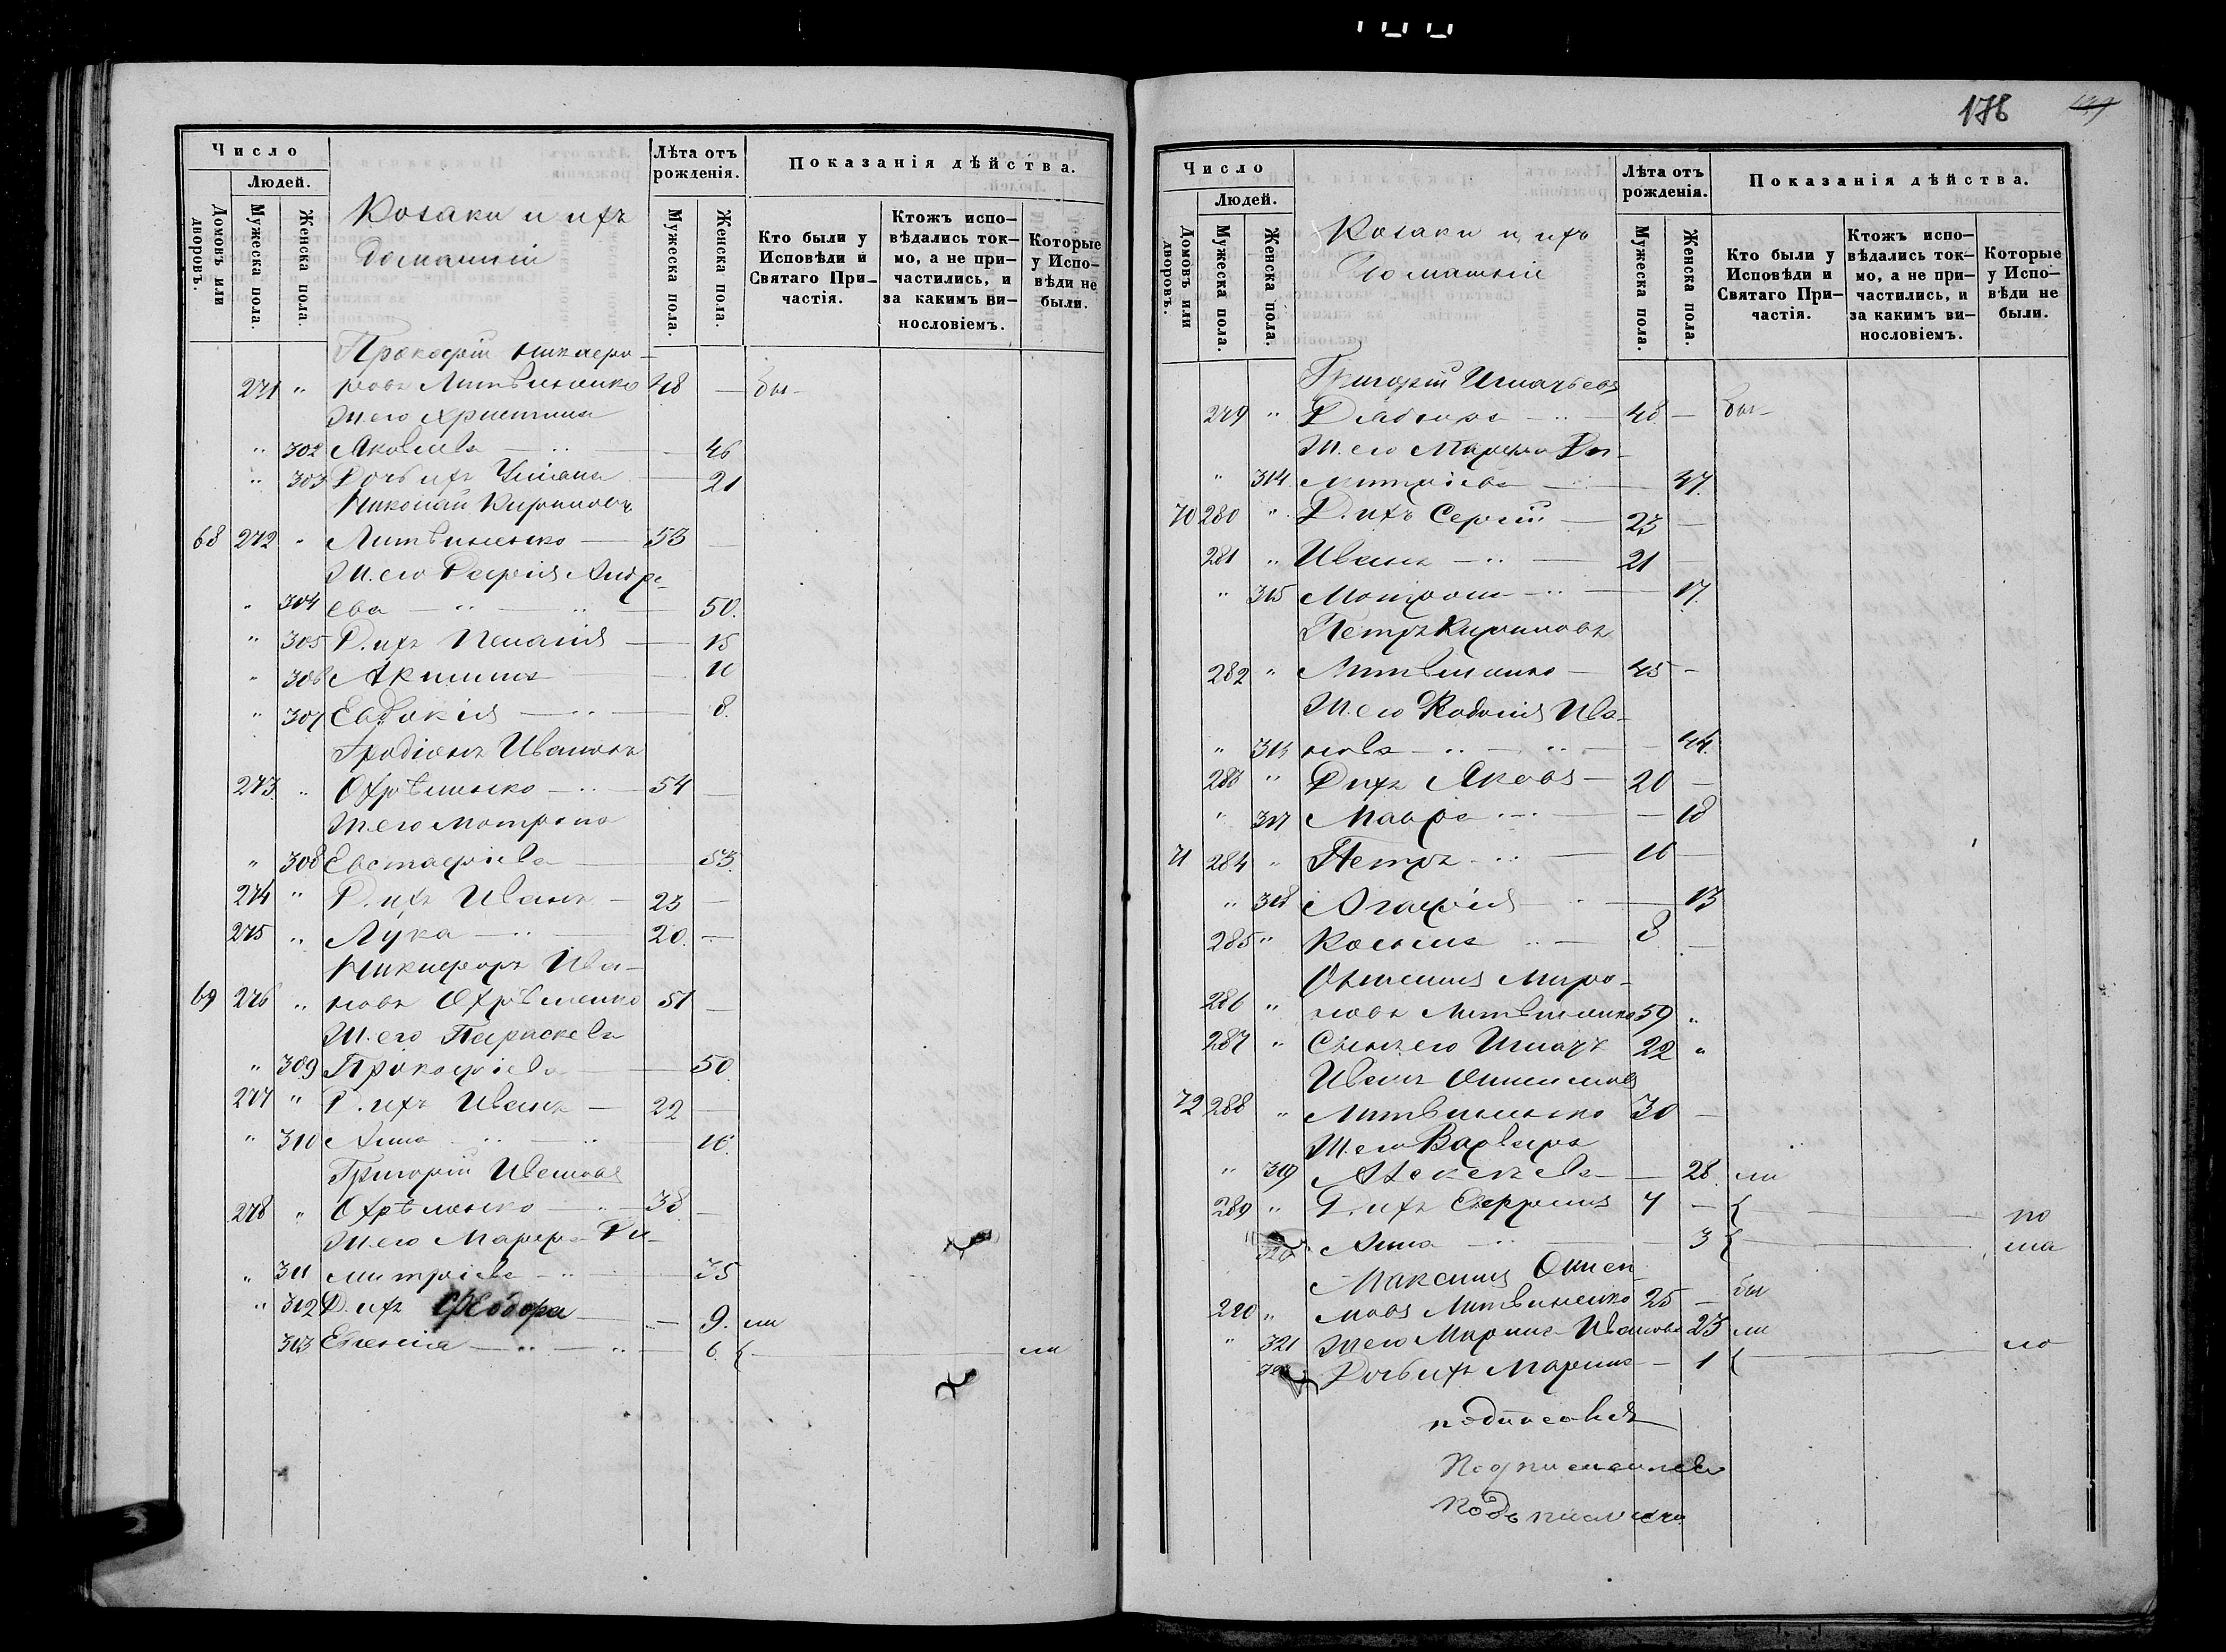 178
Число
Людей.
Домовъ или дворовъ.
Мужеска пола.
Женска пола.
Козаки и ихъ
домашніи
Лѣта отъ рожденія.
Мужеска пола.
Женска пола.
Показанія дѣйства.
Кто были у Исповѣди и Святаго Причастія.
Ктожъ исповѣдались токмо, а не причастились, и за какимъ винословіемъ.
Которые у Исповѣди не были.
Прокофій Никифо-
271 " ровъ Литвиненко 48 — бы-
Ж. его Христина
" 302 Яковлева — 46
" 303 Дочь ихъ Уліана — 21
Николай Кириловъ
68 272 " Литвиненко — 53 —
Ж. его Дарія Андре-
" 304 ева — 50.
" 305 Д. ихъ Пелагія — 15
" 306 Акилина — 11
" 307 Евдокія — 8.
Іродіонъ Ивановъ
273. " Охрѣменко — 54 —
Ж. его Мотрона
" 308 Евстафіева — 53.
274 " Д. ихъ Иванъ — 23 —
275 " Лука — 20. —
Никифоръ Ива-
69 276 " новъ Охрѣменко 51 —
Ж. его Параскева
" 309 Прокофіева — 50.
277 " Д. ихъ Иванъ — 22 —
" 310 Анна — 16.
Григорій Ивановъ
278 " Охрѣменко — 38 —
Ж. его Марфа Ди-
" 311 митріева — 35
" 312 Д. ихъ Феодора — 9. ли
313 Евгенія — 6. { — ли
Число
Людей.
Домовъ или дворовъ.
Мужеска пола.
Женска пола.
Козаки и ихъ
домашніи
Лѣта отъ рожденія.
Мужеска пола.
Женска пола.
Показанія дѣйства.
Кто были у Исповѣди и Святаго Причастія.
Ктожъ исповѣдались токмо, а не причастились, и за какимъ винословіемъ.
Которые у Исповѣди не были.
Григорій Игнатьевъ
279 " 48 — бы-
Ж. его Марфа Ди-
" 314 митріева — 47.
70 280 " Д. ихъ Сергій — 23 —
281 " Иванъ — 21 —
" 315 Мотрона — 17.
Петръ Кириловъ
282 " Литвиненко — 45 —
Ж. его Ива-
" 316 нова — 44.
283 " Д ихъ Яковъ — 20 —
" 317 Мавра — 18
71 284 " Петръ — 16 —
" 318 Агафія — 13
285 " Косьма — 8 —
Онисимъ Миро-
286 " новъ Литвиненко 59 "
287 " Сынъ его Игнатъ 22 "
Иванъ Онисимовъ
72 288 " Литвиненко 30 —
Ж. его Варвара
" 319 — 28. ли
289 " Д. ихъ 7 — { — по
" 320 Анна — 3 { — ма
МаксимъОниси-
290 " мовъ Литвиненко 25 — бы
" 321 Ж его Марина Иванова 23 ли
322 Дочь ихъ Марина — 1 { — ло